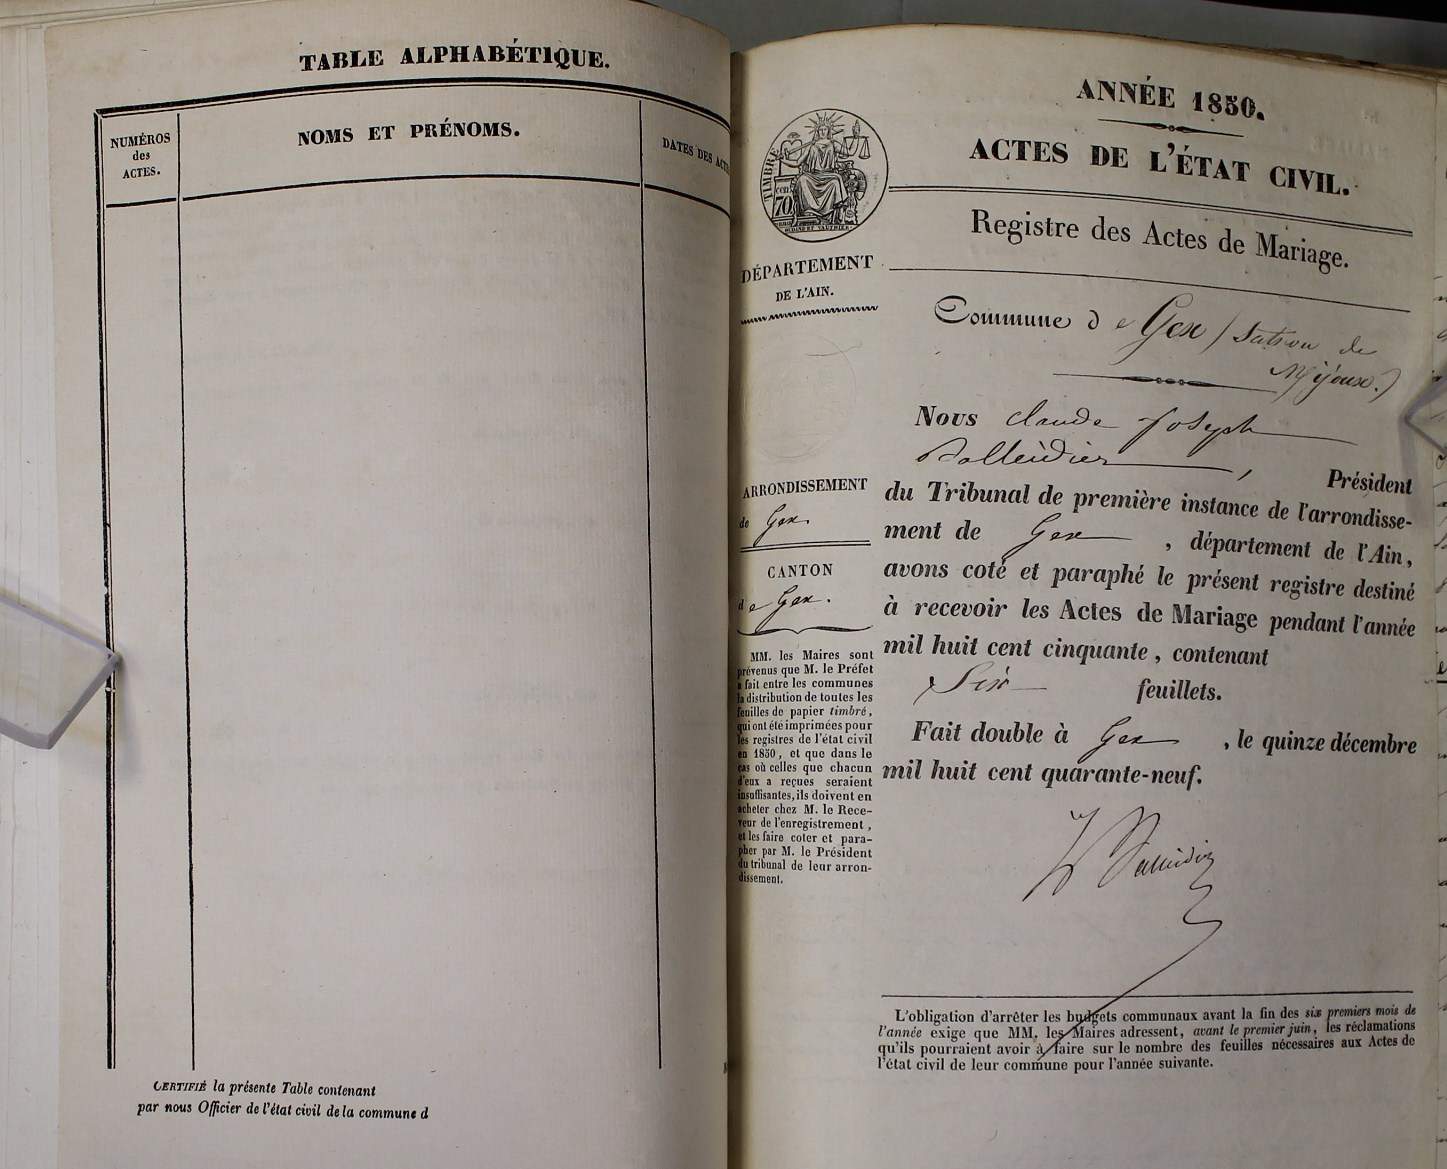 TABLE ALPHABÉTIQUE.
NUMÉROS
des
ACTES.
NOMS ET PRÉNOMS.
DATES DES ACTE
CERTIFIÉ la présente Table contenant
par nous Officier de l'état civil de la commune d
ANNÉE 1850.
ACTES DE L'ÉTAT CIVIL.
Registre des Actes de Mariage.
TIMBRE
cen
70
DÉPARTEMENT
DE L'AIN.
Commune de Gex (Section de
Mijoux.)
ARRONDISSEMENT
de Gex.
CANTON
de Gex.
MM. les Maires sont
prévenus que M. le Préfet
a fait entre les communes
la distribution de toutes les
feuilles de papier timbré,
qui ont été imprimées pour
les registres de l'état civil
en 1850, et que dans le
cas où celles que chacun
d'eux a reçues seraient
insuffisantes, ils doivent en
acheter chez M. le Rece-
veur de l'enregistrement,
et les faire coter et para-
pher par M. le Président
du tribunal de leur arron-
dissement.
Nous Claude Joseph
, Président
du Tribunal de première instance de l'arrondisse-
ment de Gex, département de l'Ain,
avons coté et paraphé le présent registre destiné
à recevoir les Actes de Mariage pendant l'année
mil huit cent cinquante, contenant
Six feuillets.
Fait double à Gex, le quinze décembre
mil huit cent quarante-neuf.
L'obligation d'arrêter les budgets communaux avant la fin des six premiers mois de
l'année exige que MM. les Maires adressent, avant le premier juin, les réclamations
qu'ils pourraient avoir à faire sur le nombre des feuilles nécessaires aux Actes de
l'état civil de leur commune pour l'année suivante.